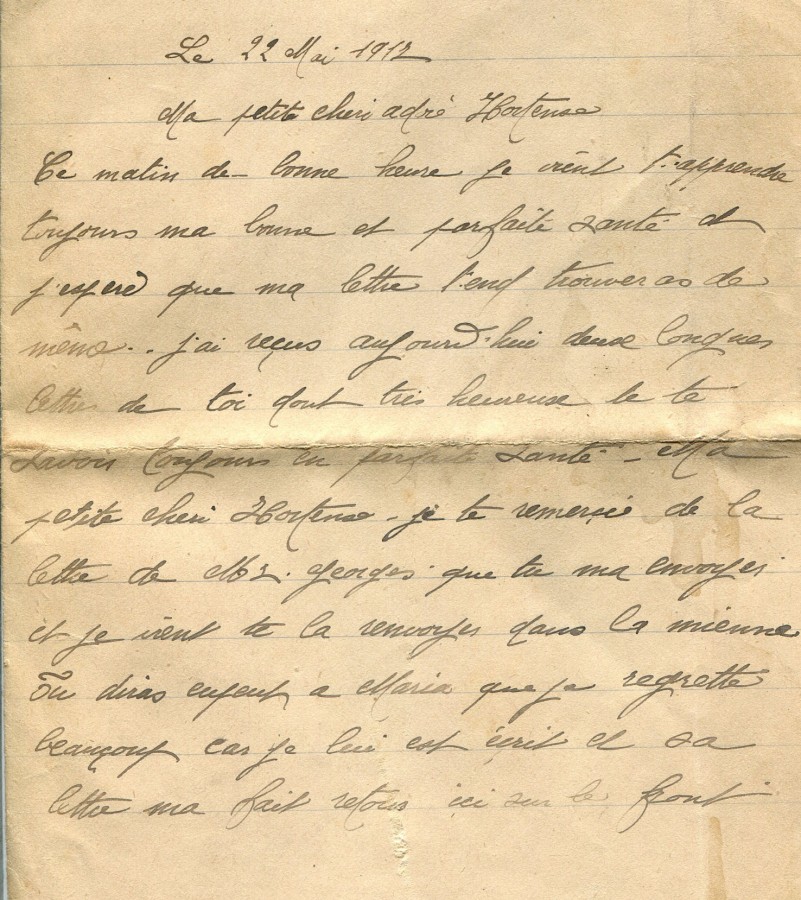 Le 22 Mai 1917
Ma petite cheri adré Hortense
Ce matin de - bonne heure je vient t'apprendre
toujours ma bonne et parfaite santé et
j'espere que ma lettre t'end trouveras de
même.. j'ai reçus aujourd'hui deux longues
lettre de toi dont très heureuse de te
savoir toujours en parfaite santé - Ma
petite cheri Hortense - je te remercie de la
lettre de Mr. Georges que tu ma envoyes
et je vient te la renvoyes dans la mienne
Tu diras enfent a Maria que je regrette
beauçoup car je lui est écrit et sa
lettre ma fait retour içi sur le front